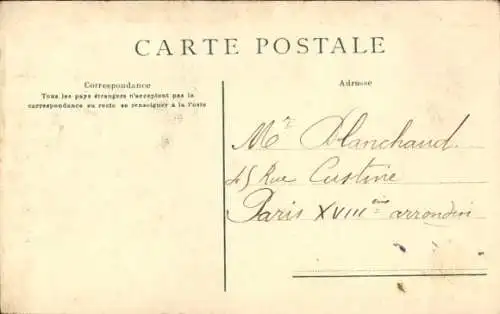 CARTE POSTALE
Correspondance
Tous les pays étrangers n'acceptent pas la
correspondance au recto se renseigner à la Poste
Adresse
Mr Blanchaud.
45 Rue Custine
Paris XVIIIème arrondin